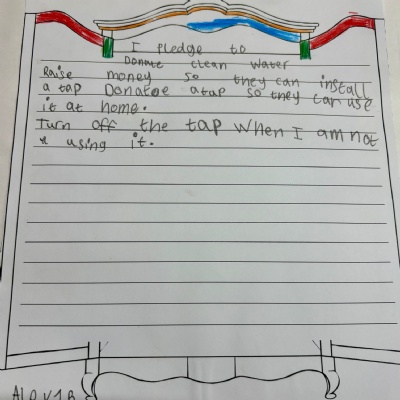 I pledge to
Donate clean water
Raise money so they can install
a tap Donatoe atap so they can use
it at home.
Turn off the tap when I am not
using it.